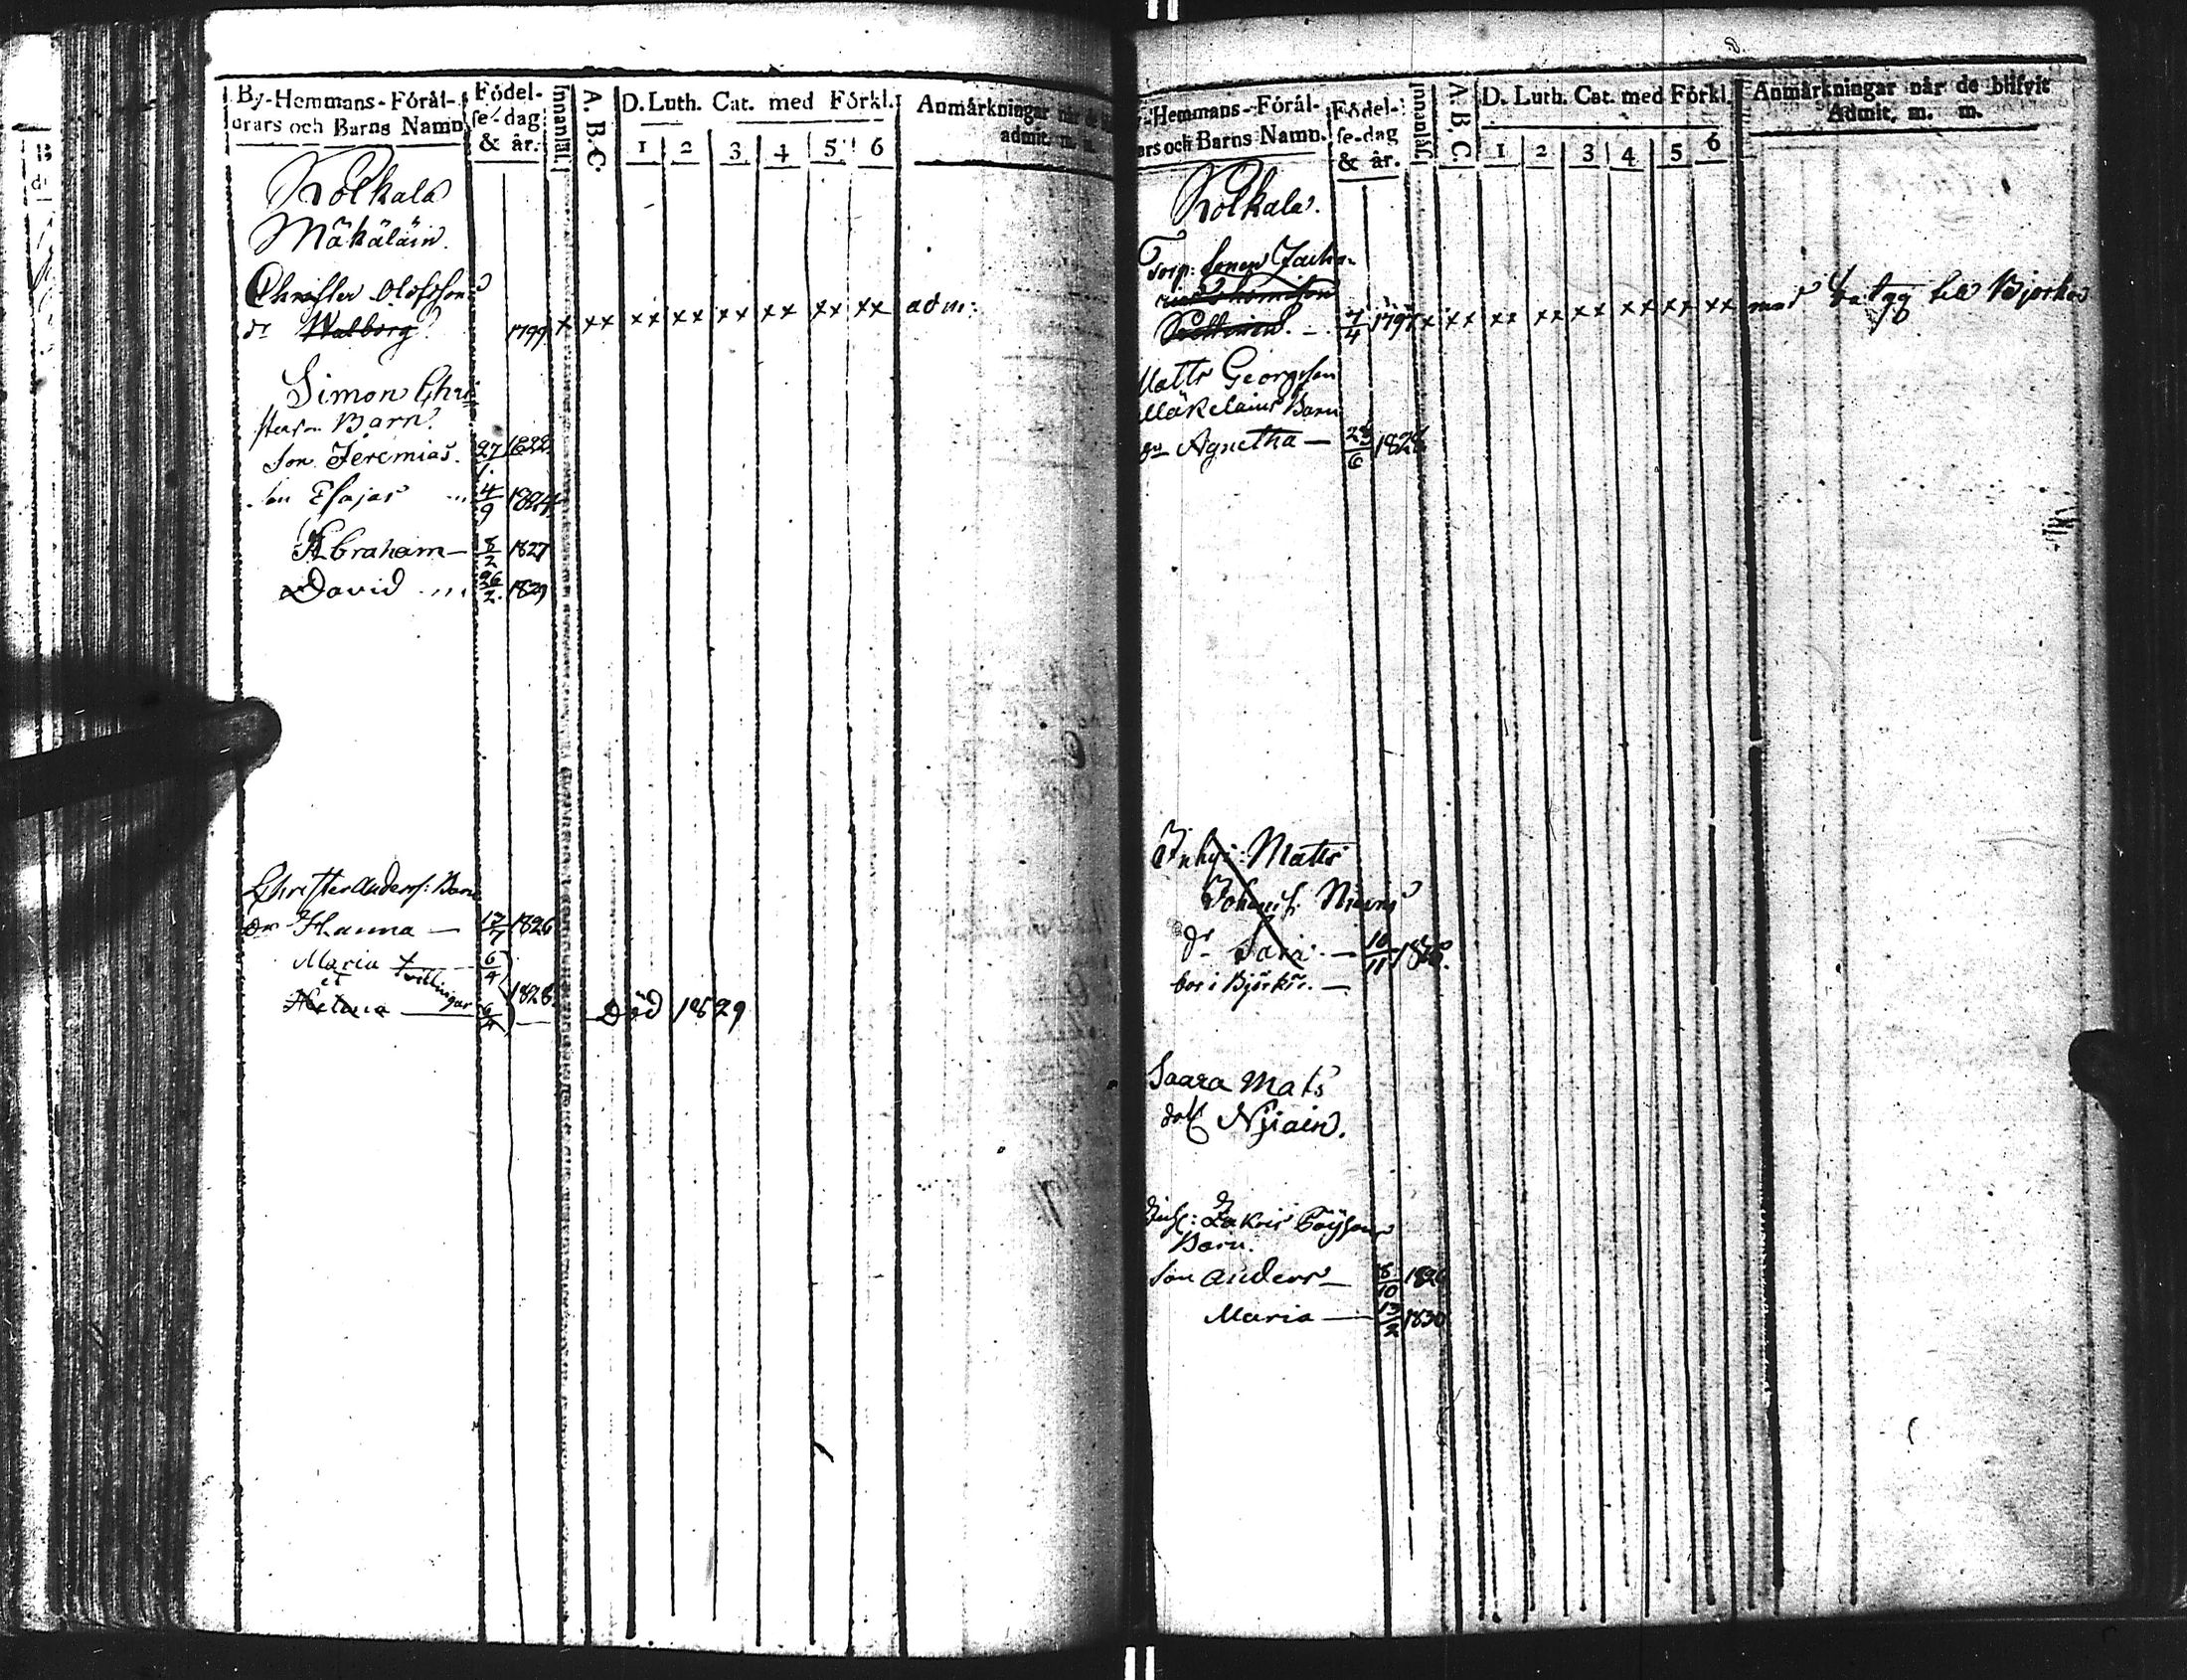 By-Hemmans-Förål-
drars och Barns Namn
Födel-
se-dag
& år.
Innanläs.
A. B. C.
D. Luth. Cat. med Förkl.
1 2 3 4 5 6
Anmärkningar när de
admit. m. m.
Kolkala
Mäkäläin.
Christer Olofsson
dr Walborg 1799 x xx xx xx xx xx xx xx adm:
Simon Chri
sterson Barn.
Son Jeremias. 27/1. 1822
Son Esajas 4/9 1824
Abraham — 8/2 1827
David 26/2 1829
Christer Anderss: Barn
dr Hanna — 17/7 1826
Maria 6/4
et tvillingar 1828
Helena 6/4 — Död 1829
-Hemmans-Förål-
ars och Barns Namn.
Födel-
se-dag
& år.
Innanläs.
A. B. C.
D. Luth. Cat. med Förkl.
1 2 3 4 5 6
Anmärkningar när de blifvit
Admit. m. m.
Kolkala.
Torp:
7/4 1797 x xx xx xx xx xx xx xx med betyg till Björkö
Matts Georgsson
Mäkeläins Barn
dr Agnetha — 6 1828
Inhys: Matts
Johanss. Nieme
dr Sara — 16/11
bor i Björkö. —
Saara Mats
dott Nÿiain.
Zakris Barn.
Son Anders — 8/10 1826
Maria — 13/2 1830